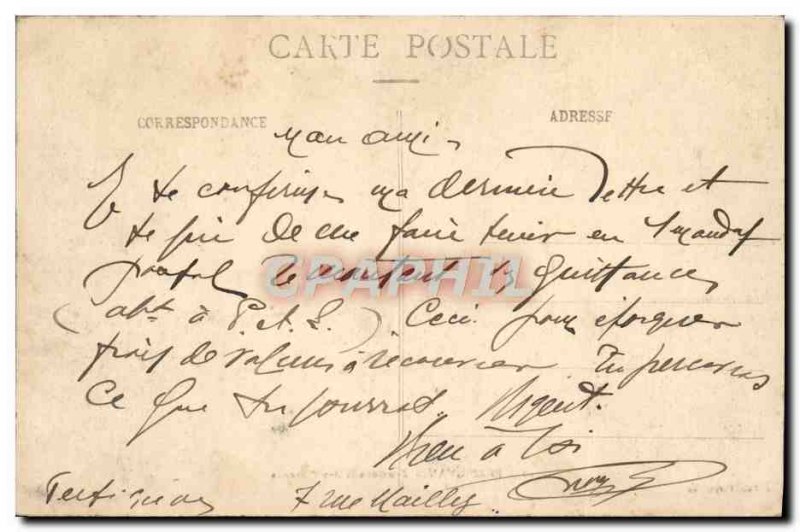 CARTE POSTALE
CORRESPONDANCE
ADRESSE
Mon ami,
Je te confirme ma dernière lettre et
te prie de me faire tenir en 1 mandat
postal le montant quittances
CPAPHIL
(abt à P.A.L.) Ceci pour épargner
frais de valeurs à recouvrer Tu percevras
ce que tu pourras. Urgent.
Bien à toi
7 rue Mailly